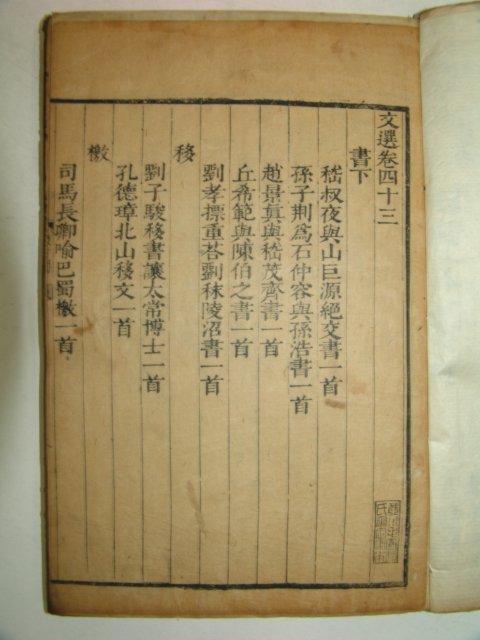 文選卷四十三
書下
嵇叔夜與山巨源絕交書一首
孫子荊為石仲容與孫浩書一首
趙景眞與嵇茂齊書一首
丘希範與陳伯之書一首
劉孝標重荅劉秣陵沼書一首
移
劉子駿移書讓太常博士一首
孔德璋北山移文一首
檄
司馬長卿喻巴蜀檄一首